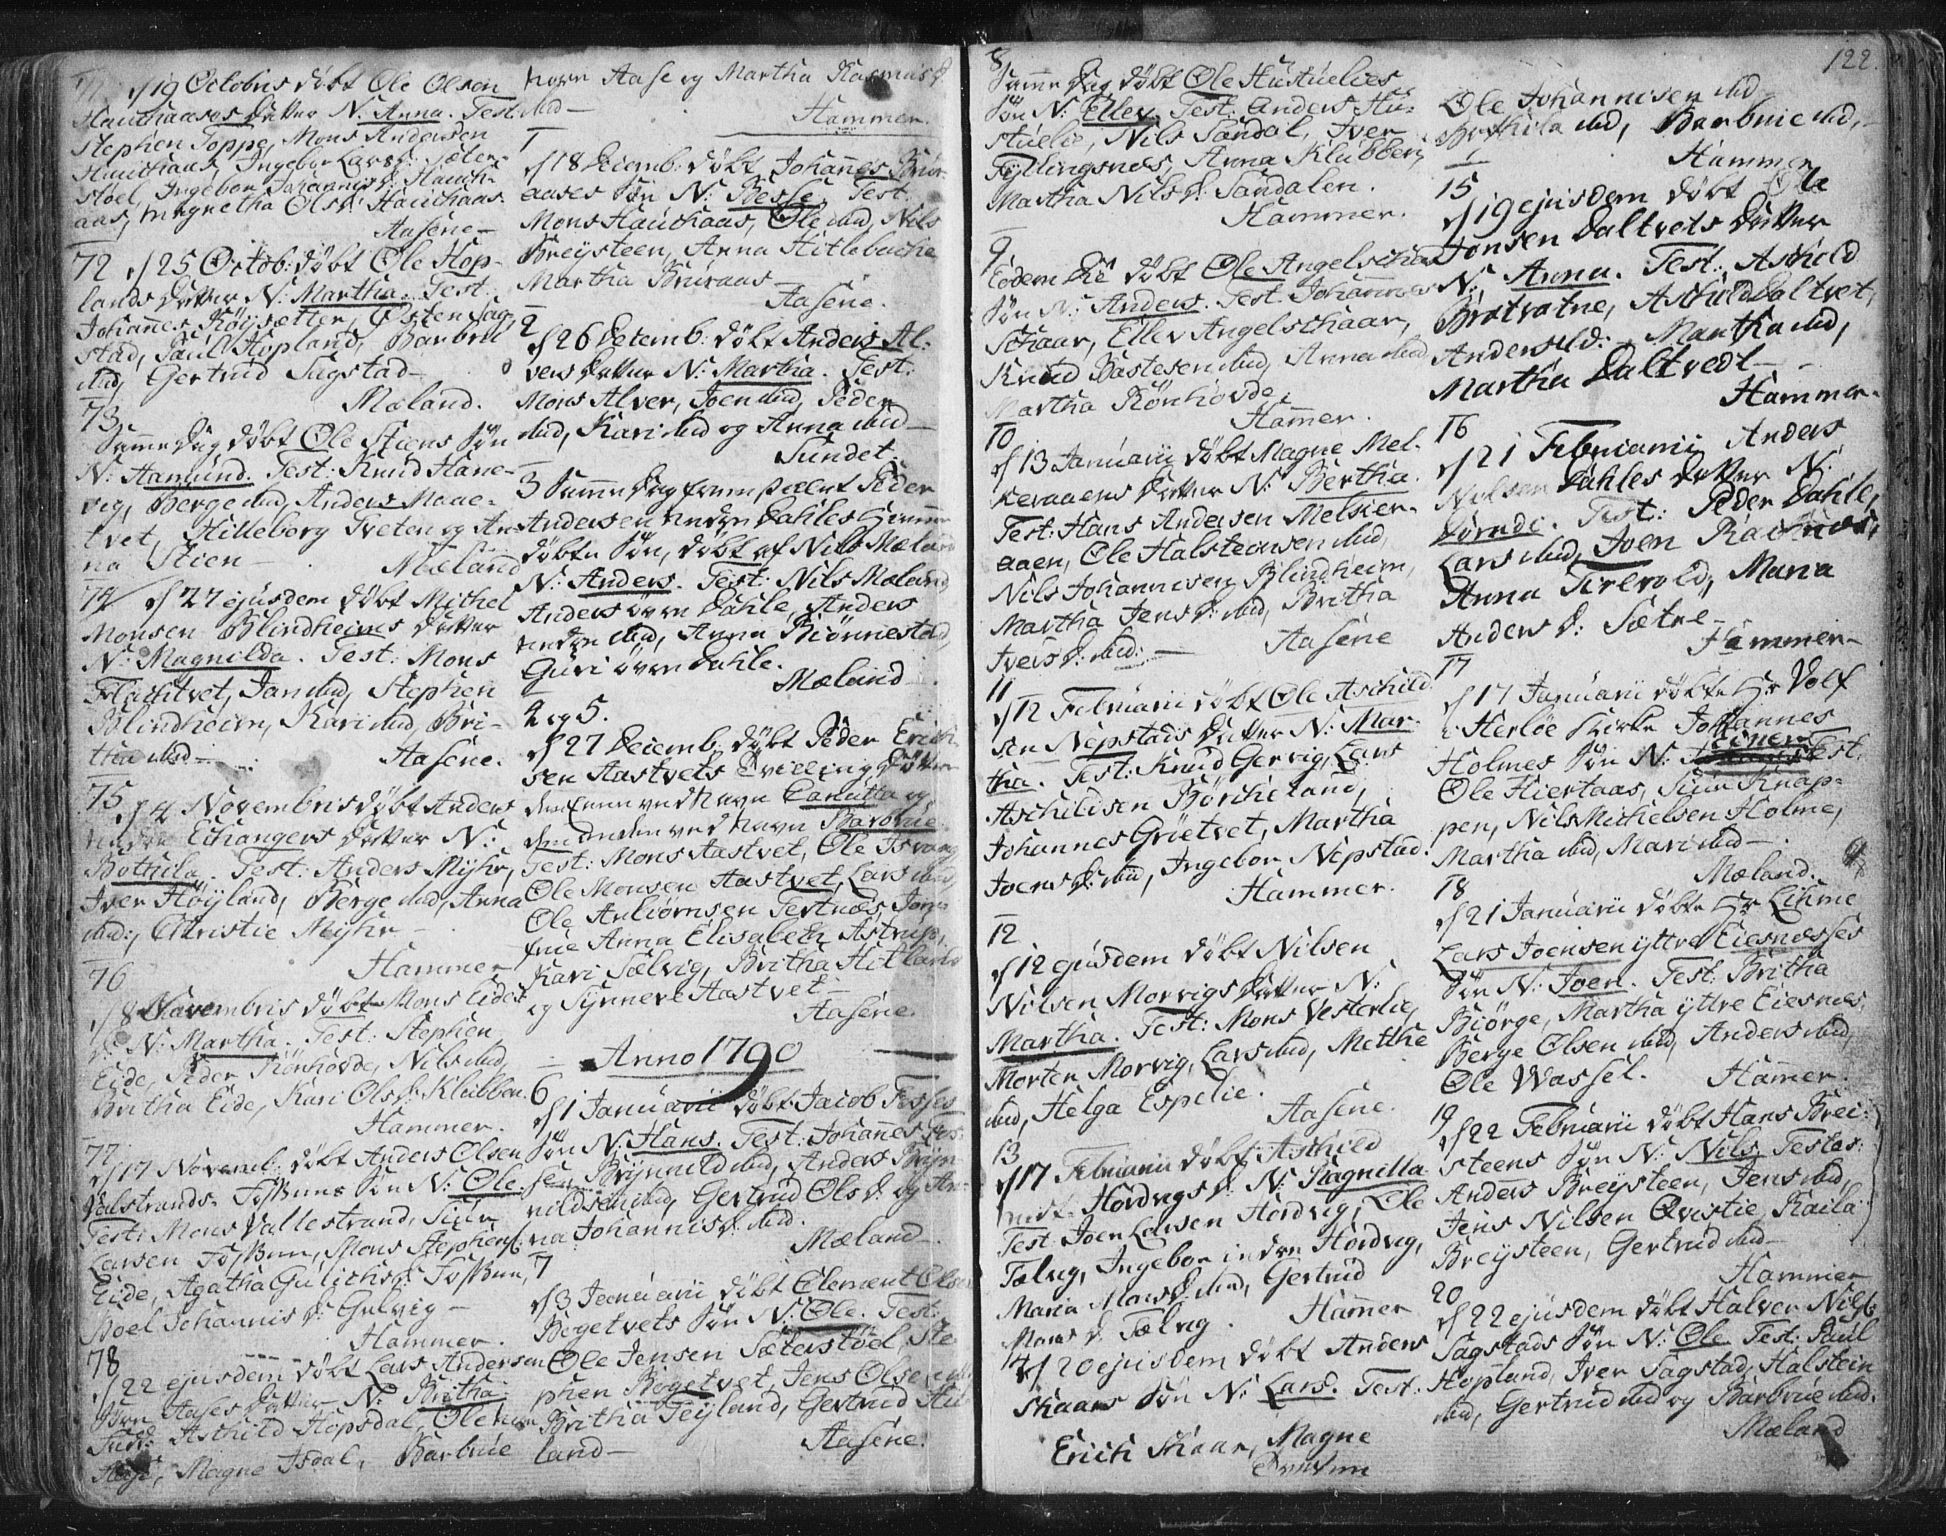 71 d 19 Octobris döbt Ole Olsen
Hauchaases Datter N: Anna. Test.
Stephen Toppe, Mons Andersen
Hauchaas, Ingebor Larsd: Sæter-
stöel, Ingebor Johannisd: Hauch-
aas, Magnetha Olsd: Hauchaas.
Aasene
72 d 25 Octob: döbt Ole Hop-
lands Datter N: Martha. Test.
Johannes Röysetter, Östen Sag-
stad, Paul Hopland, Barbru
ibid, Gertrud Sagstad
Mæland.
73
Samme Dag döbt Ole Stiens Sön
N: Hamund. Test: Knud Hane-
vig, Berge ibid, Anders Maae-
tvet, Hilleborg Tveten og An-
na Stien
Mæland
74 d 27 ejusdem döbt Michel
Monsen Blindheims Datter
N: Magnilda. Test: Mons
Flachtvet, Jan ibid, Stephen
Blindheim, Kari ibid, Bri-
tha ibid
Aasene.
75
d 4 Novembris döbt Anders
nedre Echangers Datter N:
Bothila. Test: Anders Myhr,
Iver Höyland, Berge ibid, Anna
ibid:, Christie Myhr
Hammer
76
d 8 Novembris döbt Mons Eides
D: N: Martha. Test: Stephen
Eide, Peder Rönhovde, Nils ibid,
Britha Eide, Kari Olsd: Klubben.
Hammer.
77
d 17 Novemb: döbt Anders Olsen
Valstrands Fossuns Sön N: Ole.
Test: Mons Vallestrand, Siur
Larsen Fossun, Mons Stephens:
Eide, Agatha Gulichsd: Fossun,
Boel Johannisd: Gulvig
Hammer.
78
d 22 ejusdem döbt Lars Andersen
Aases Datter N: Britha.
Test: Aschild Hopsdal, Ole
Aase, Magne Isdal, Barbrue
Aase og Martha Rasmusd:
ibid
Hammer.
1
d 18 Decemb: döbt Johannes Brur-
aases Sön N: Besse. Test.
Mons Hauchaas, Ole ibid, Nils
Breysteen, Anna Hitlebache
Martha Bruraas
Aasene.
2
d 26 Decemb: döbt Anders Al-
vers Datter N: Martha. Test.
Mons Alver, Joen ibid, Peder
ibid, Kari ibid og Anna ibid
Sundet.
3 Samme Dag fremstillet Peder
Andersen nedre Dahles Hiemme
döbte Sön, döbt af Nils Mæland
N: Anders. Test: Nils Mæland,
Anders övre Dahle, Anders
nedre ibid, Anna Biönnestad,
Guri övre Dahle.
Mæland
4 og 5.
d 27 Decemb: döbt Peder Erich-
sen Aastvets Tvilling Dötre
den Eene ved Navn Canutta og
den anden ved Navn Barbrue.
Test: Mons Aastvet, Ole Tsvang
Ole Monsen Aastvet, Lars ibid,
Ole Anbiörnsen Testnæs, Jom-
frue Anna Elisabeth Astrup,
Kari Sælvig, Britha Hitland
og Synneve Aastvet
Aasene.
Anno 1790
6
d 1 Januarii döbt Jacob Fosses
Sön N: Hans. Test: Johannes Fos-
se, Brynnild ibid, Anders Bryn-
nildsen ibid, Gertrud Olsd: og An-
na Johannisd: ibid.
Mæland
7
d 3 Januarii döbt Clement Olsen
Bogetvets Sön N: Ole. Test:
Ole Jensen Sæterstöel, Ste-
phen Bogetvet, Jens Olsen
Britha Teyland, Gertrud
land
Aasene.
122
8
Samme Dag döbt Ole Hustuelies
Sön N: Eller. Test: Anders Hu-
stuelie, Nils Sandal, Iver
Fyllingsnes, Anna Klubben,
Martha Nilsd: Sandalen.
Hammer.
9
Eodem Die döbt Ole Angelschaars
Sön N: Anders. Test: Johannes
Schaar, Eller Angelschaar,
Knud Bastesen ibid, Anna ibid,
Martha Rönhovde
Hammer.
10
d 13 Januarii döbt Magne Mel-
keraaens Datter N: Bertha.
Test: Hans Andersen Melker-
aaen, Ole Halsteinsen ibid,
Nils Johannesen Blindheim,
Martha Jensd: ibid, Britha
Iversd: ibid:
Aasene
11
d 12 Februarii döbt Ole Aschild-
sen Nepstads Datter N: Mar-
tha. Test: Knud Gervig, Lars
Aschildsen Börcheland,
Johannes Grüetvet, Martha
Joensd: ibid, Ingebor Nepstad.
Hammer.
12
d 12 ejusdem döbt Nilsen
Nilsen Morvigs Datter N:
Martha. Test: Mons Vesterlie,
Morten Morvig, Lars ibid, Methe
ibid, Helga Espelie.
Aasene.
13
d 17 Februarii döbt Aschild
indre Hordvigs D: N: Ragnilla
Test: Joen Larsen Hordvig, Ole
Tælvig, Ingebor indre Hordvig,
Maria Monsd: ibid, Gertrud
Monsd: Tælvig.
Hammer
14 d 20 ejusdem döbt Anders
Skaars Sön N: Lars. Test:
Erich Skaar, Magne

Ole Johannesen ibid
Bothila ibid, Barbrue ibid,
Hammer
15
d 19 ejusdem döbt Ole
Jonsen Daltvets Datter
N: Anna. Test: Aschild
Bratvatne, Aschild Daltvet,
Andersd:, Martha ibid,
Martha Daltvedt
Hammer.
16
d 21 Februarii Anders
Nielsen Dahles Datter N:
Börnde. Test: Peder Dahle,
Lars ibid, Joen
Anna Tirevold, Maria
Andersd: Sætre
Hammer
17
d 17 Januarii döbte Hr Volf
i Herlöe Kirke Johannes
Holmes Sön N: Einert Test.
Ole Hiertaas, Siur Knap-
pen, Nils Michelsen Holme,
Martha ibid, Mari ibid
Mæland.
18
d 21 Januarii döbte Hr Lihme
Lars Joensen yttre Eiesnæsses
Sön N: Joen. Test: Britha
Biörge, Martha yttre Eiesnæs
Berge Olsen ibid, Anders ibid,
Ole Wassel.
Hammer.
19
d 22 Februarii döbt Hans Brei-
steens Sön N: Nils. Testes:
Anders Breysteen, Jens ibid,
Jens Nilsen Qvistie, Kaila
Breysteen, Gertrud ibid
Hammer
20
d 22 ejusdem döbt Halver Nils:
Sagstads Sön N: Ole. Test: Paul
Hopland, Iver Sagstad, Halstein
ibid, Gertrud ibid og Barbrue ibid.
Mæland